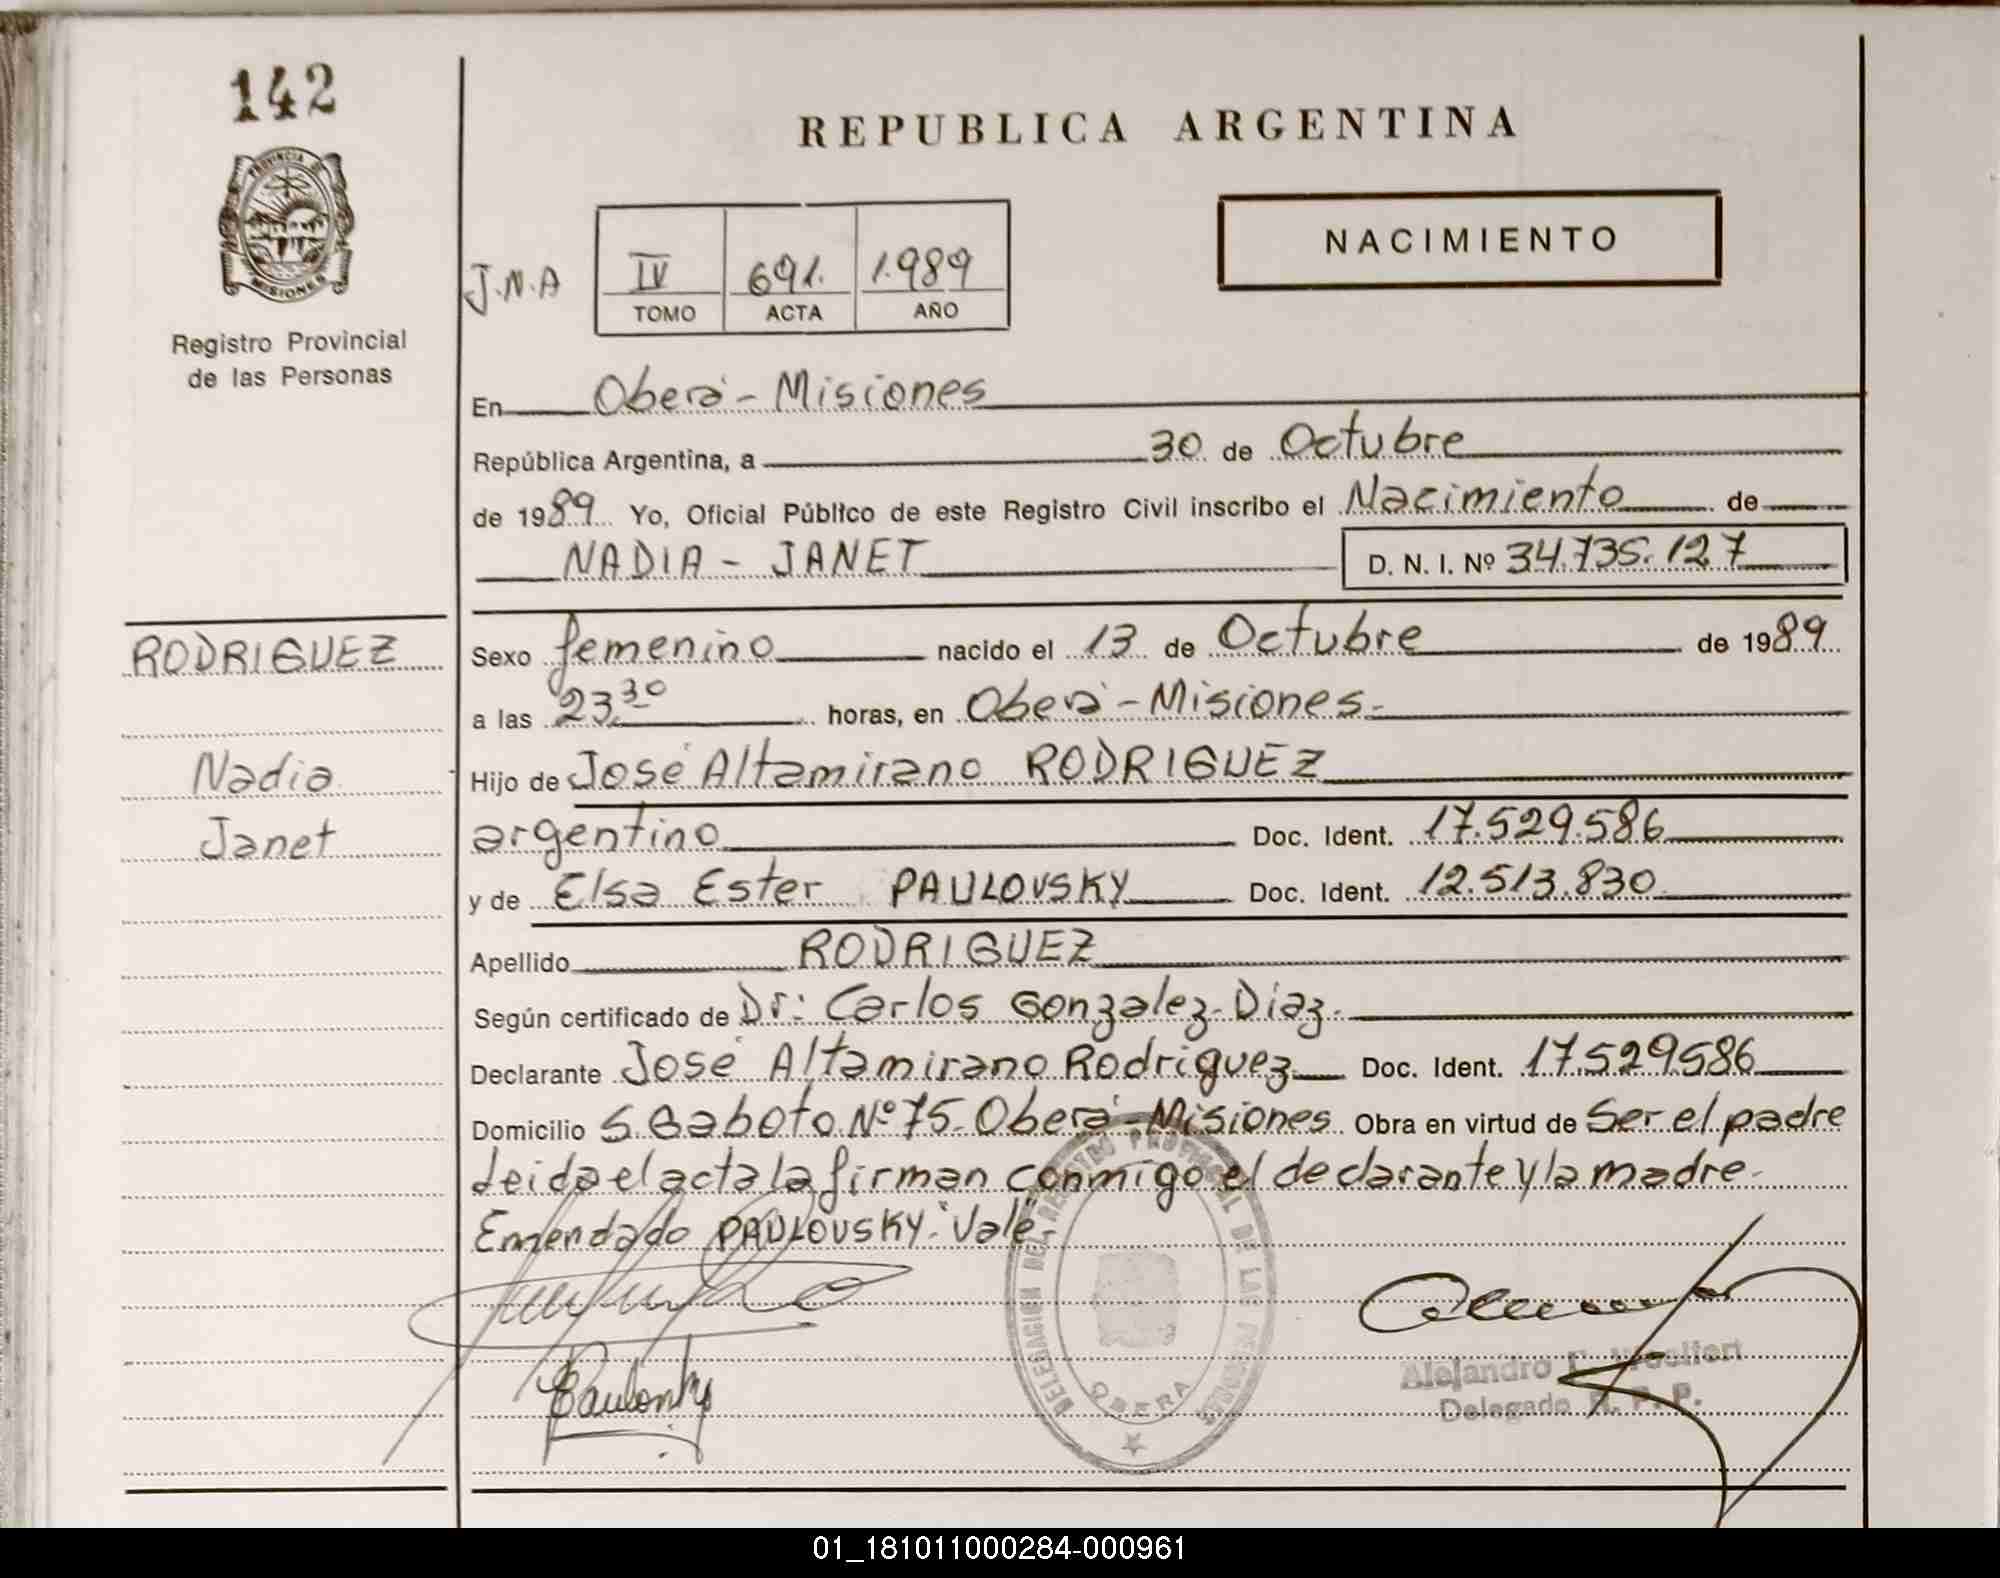 142
REPUBLICA ARGENTINA
PROVINCIA D
MISIONES
Registro Provincial
de las Personas
J.N.A
IV 691. 1.989
TOMO ACTA AÑO
NACIMIENTO
En Oberá - Misiones
República Argentina, a 30 de Octubre
de 1989 Yo, Oficial Público de este Registro Civil inscribo el Nacimiento de
NADIA - JANET D. N. I. Nº 34.735.127
RODRIGUEZ
Sexo femenino nacido el 13 de Octubre de 1989
a las 23.30 horas, en Oberá - Misiones.
Nadia
Hijo de José Altamirano RODRIGUEZ
Janet
argentino Doc. Ident. 17.529.586
y de Elsa Ester PAULOVSKY Doc. Ident. 12.513.830
Apellido RODRIGUEZ
Según certificado de Dr: Carlos Gonzalez Diaz.
Declarante José Altamirano Rodriguez Doc. Ident. 17.529586
Domicilio S. Gaboto Nº 75. Oberá - Misiones Obra en virtud de Ser el padre
Leida el acta la firman conmigo el declarante y la madre.
Enmendado PAULOVSKY. Vale.
DELEGACION DEL REGISTRO PROVINCIAL DE LAS PERSONAS
OBERA
Alejandro
Delegado R. P. P.
01_181011000284-000961